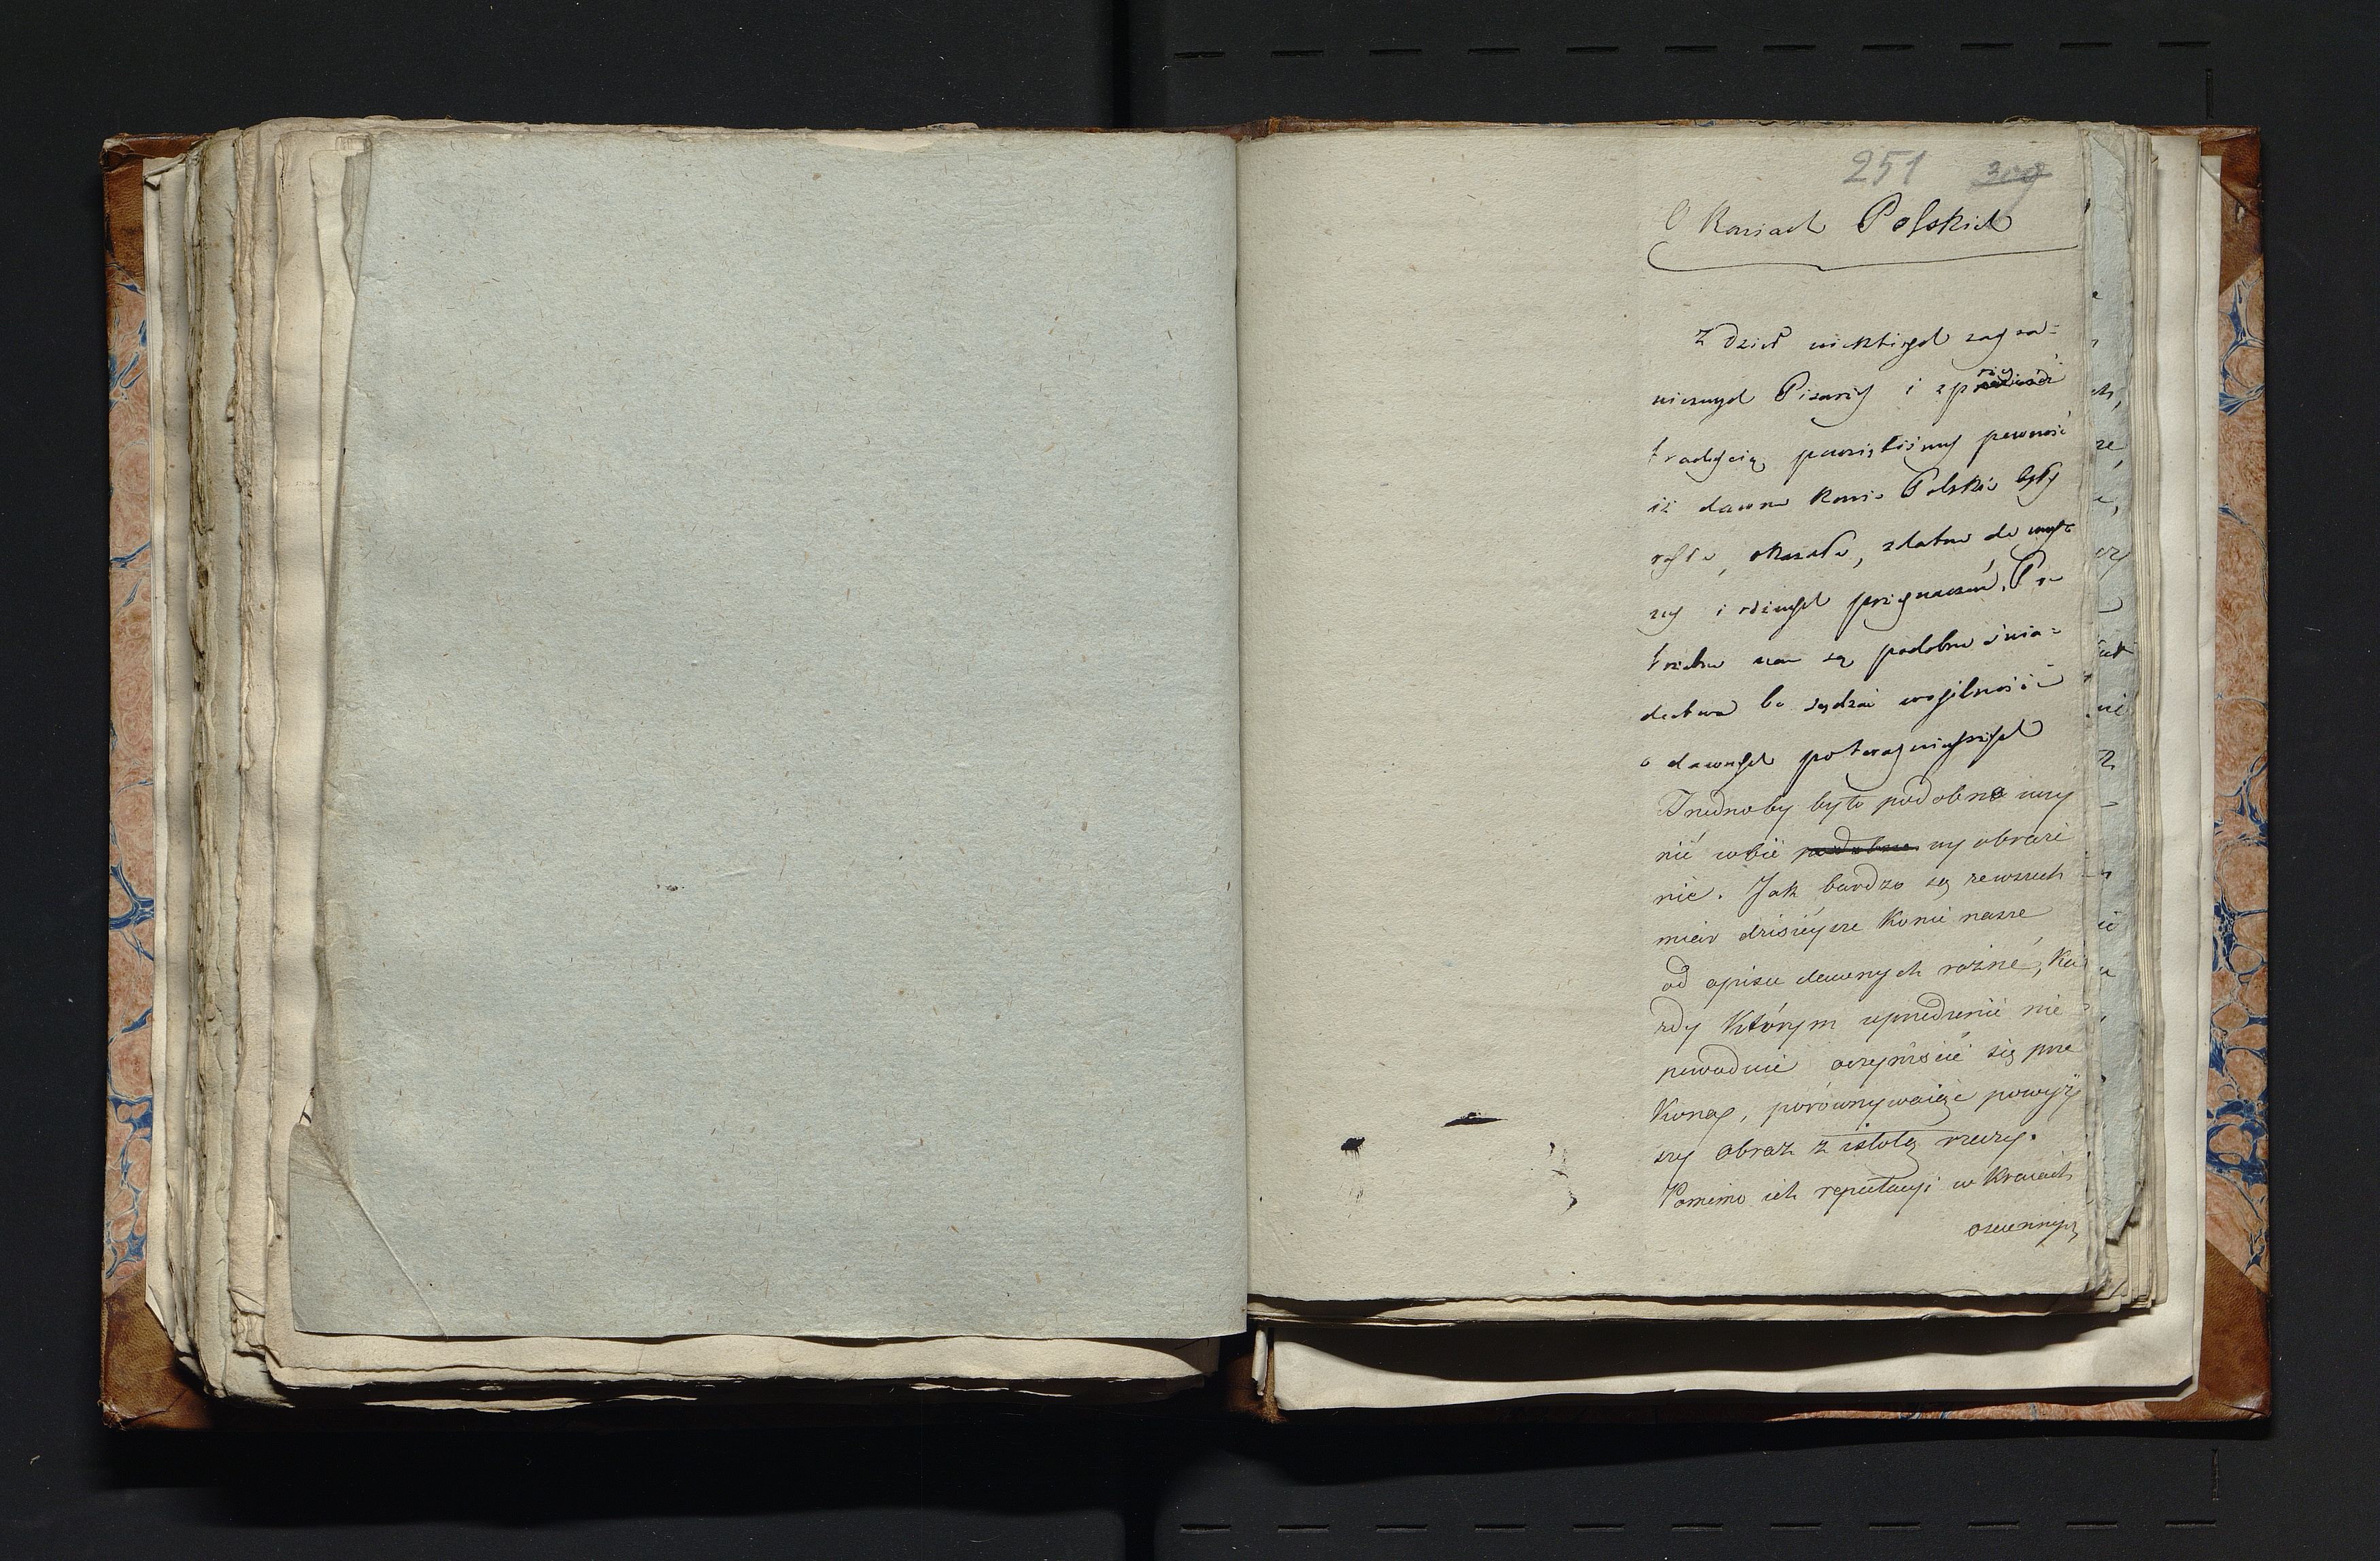 251 309
O Koniach Polskich
Z dzieł niektórych zagra=
nicznych Pisarzy i z
tradycią powzięliśmy pewność
iż dawne konie Polskie były
rosłe, okazałe, zdatne do woy=
ny i różnych przeznaczeń. Po=
trzebne nam są podobne świa=
dectwa bo sądzić
o dawnych poteraznieyszych
Trudnoby było podobne uczy
nić sobie podobne wyobraże
nie. Jak bardzo są zewszech
miar dzisieysze Konie nasze
od opisu dawnych różne, Ka
żdy którym uprzedzenie nie
powoduie oczywiście się prze
Kona, porównywaiąc powyż
szy obraz z istotą rzeczy.
Pomimo ich reputacyi w Kraiach
osciennych